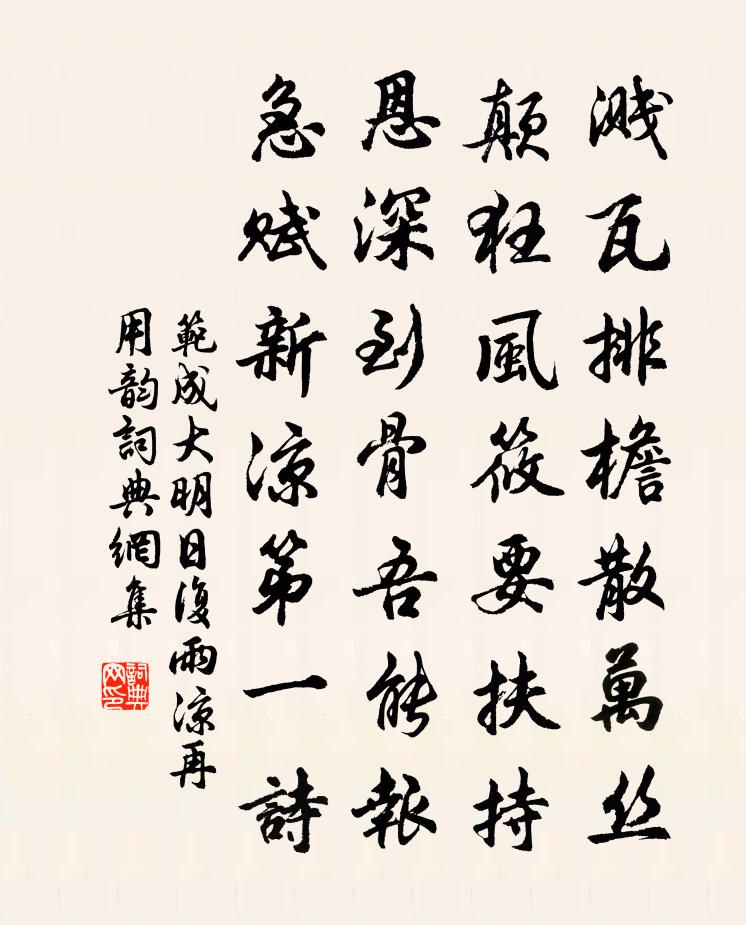 濺瓦排檐散萬丝
顛狂風筱要扶持
恩深到骨吾能報
急赋新涼第一詩
範成大明日復雨涼再
用韵詞典網集
詞典網印